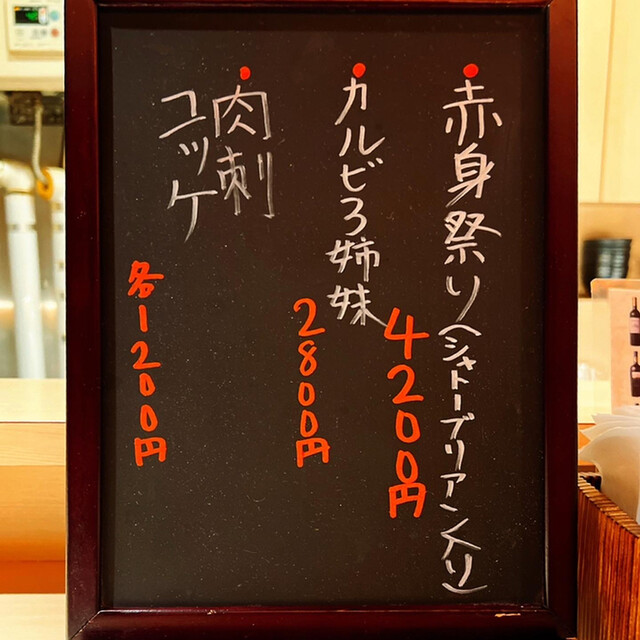 赤身祭り(シャトーブリアン入り)
4200円
カルビ3姉妹
2800円
肉刺
ユッケ
各1200円